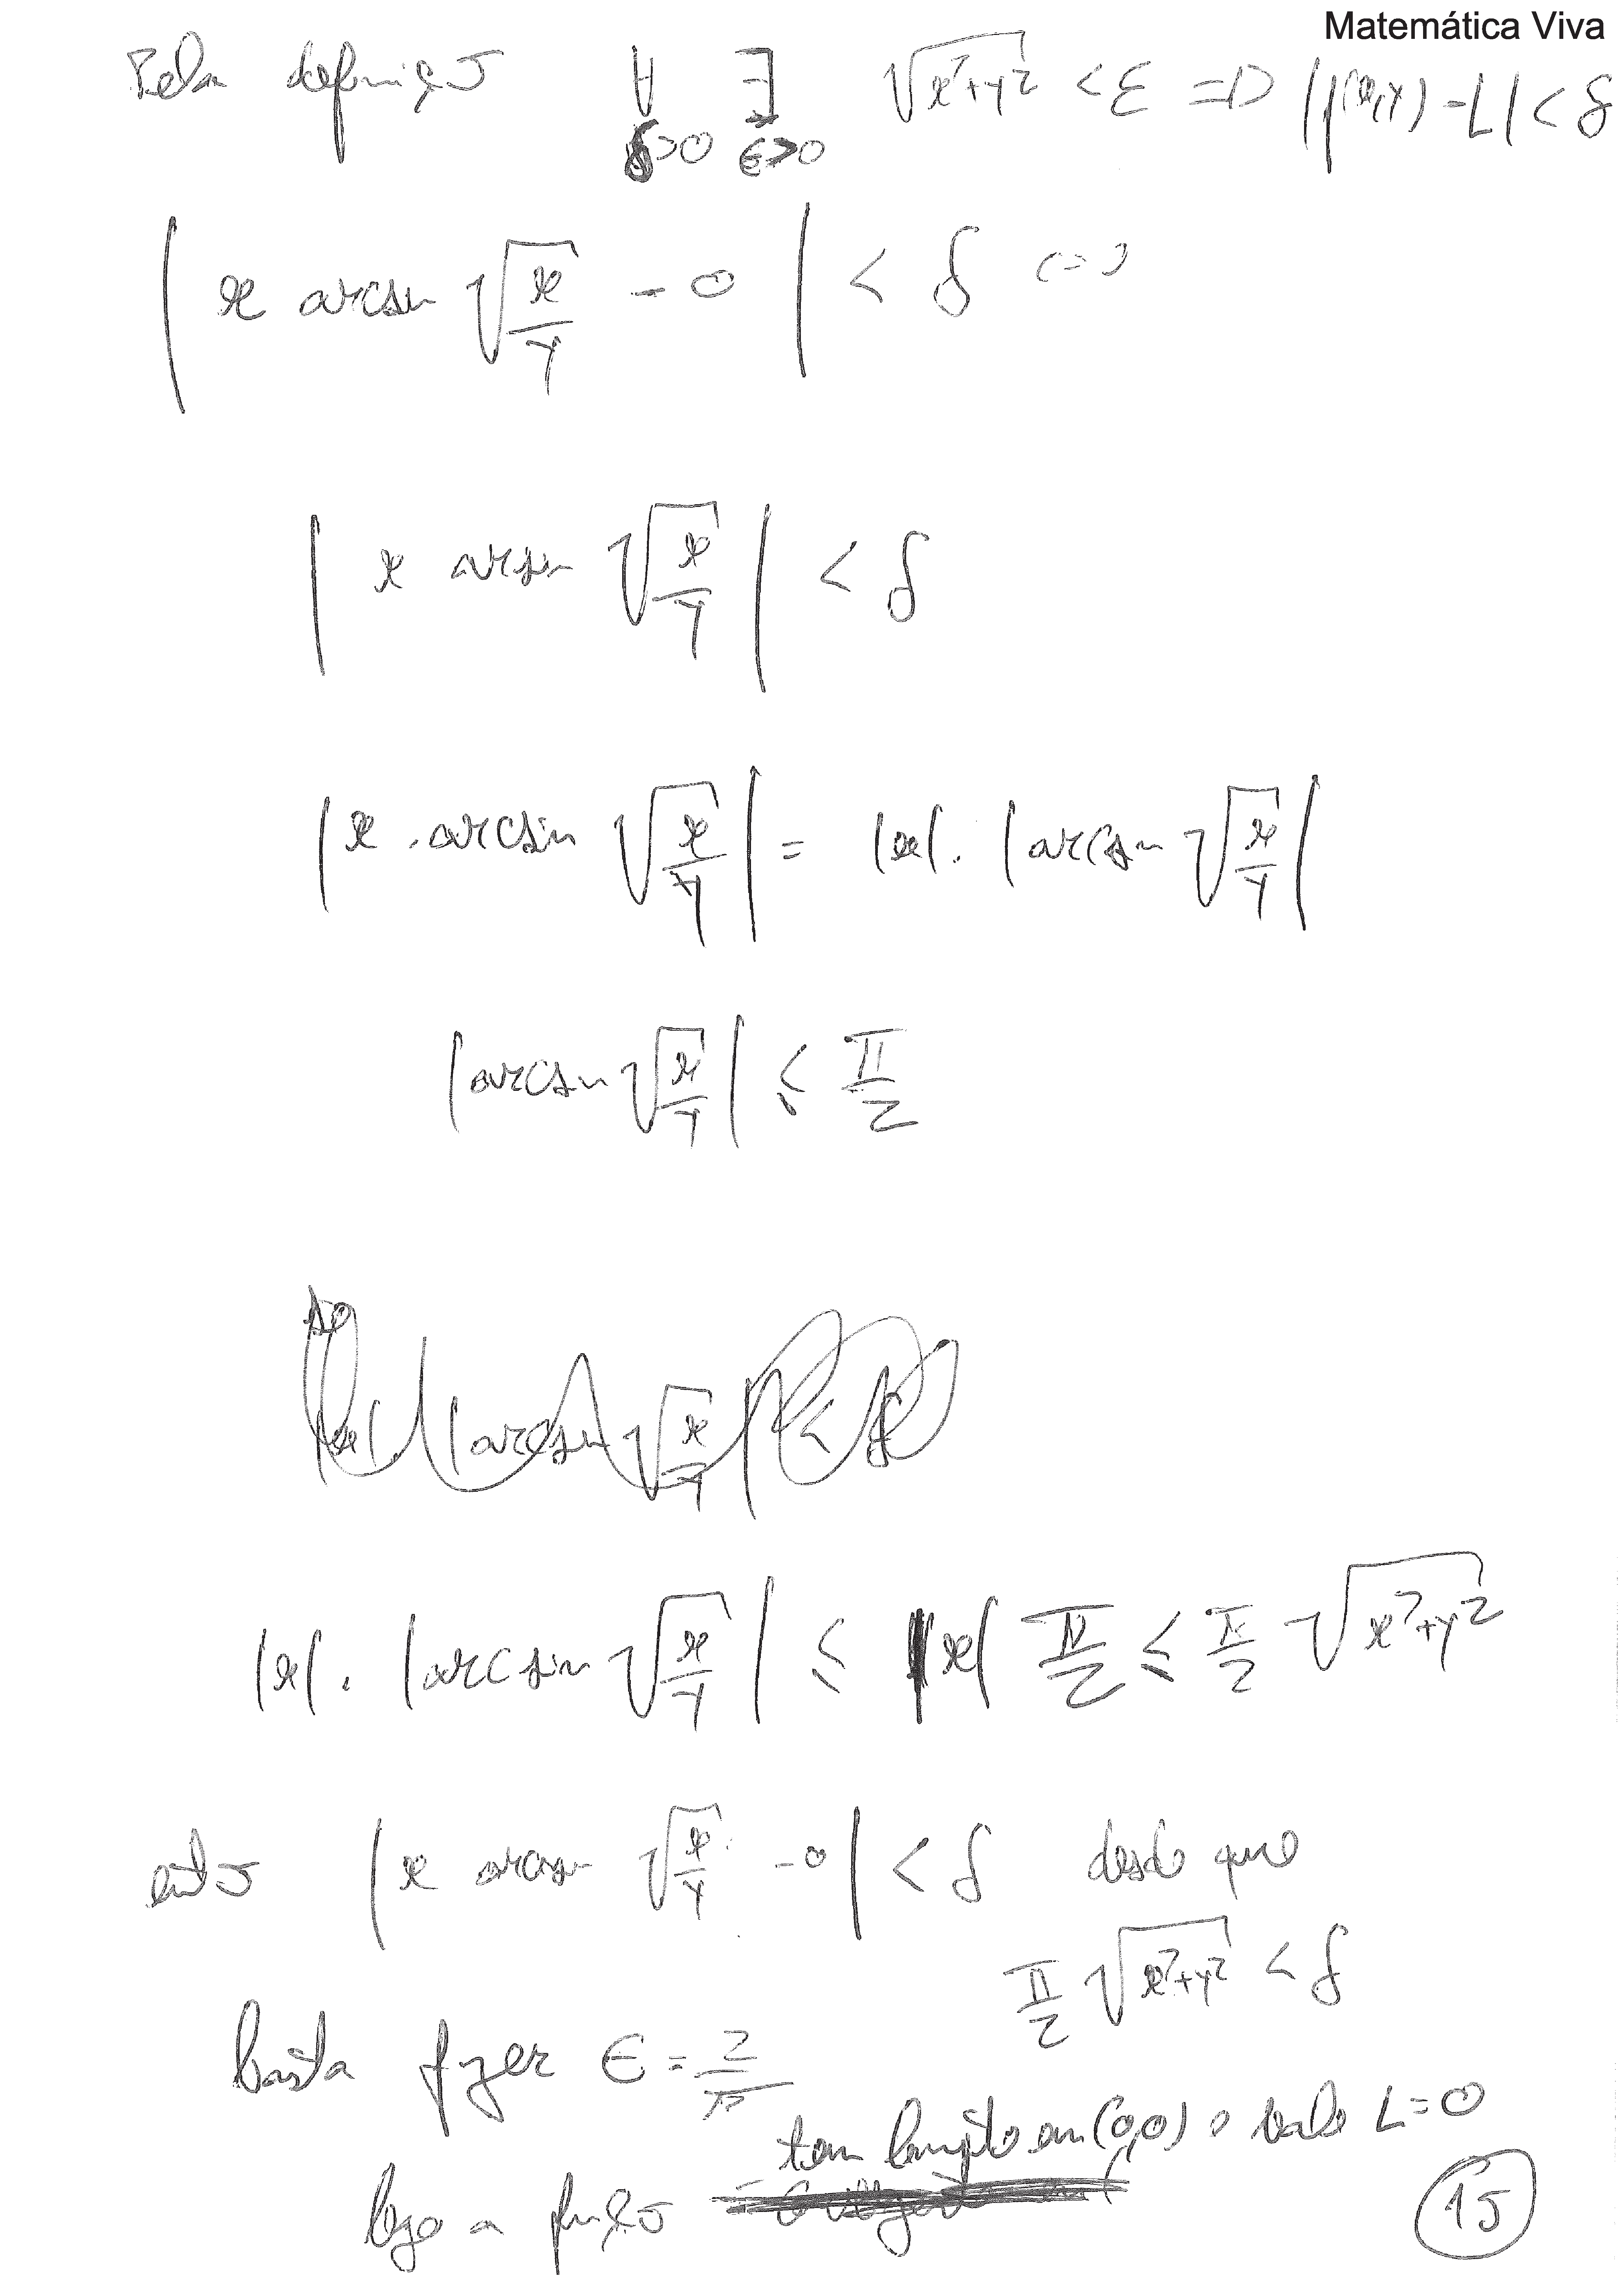 Matemática Viva
Pela definição ∀ δ>0 ∃ ε>0 √(x²+y²) < ε => |f(x,y) - L| < δ
| x arcsin √(x/y) - 0 | < δ <=>
| x arcsin √(x/y) | < δ
| x . arcsin √(x/y) | = |x| . | arcsin √(x/y) |
| arcsin √(x/y) | ≤ π/2
se
|x| | arcsin √(x/y) | < δ
|x| . | arcsin √(x/y) | ≤ |x| π/2 ≤ π/2 √(x²+y²)
então | x arcsin √(x/y) - 0 | < δ desde que
π/2 √(x²+y²) < δ
basta fazer ε = 2/π
tem limite em (0,0) o valor L=0
logo a função
15